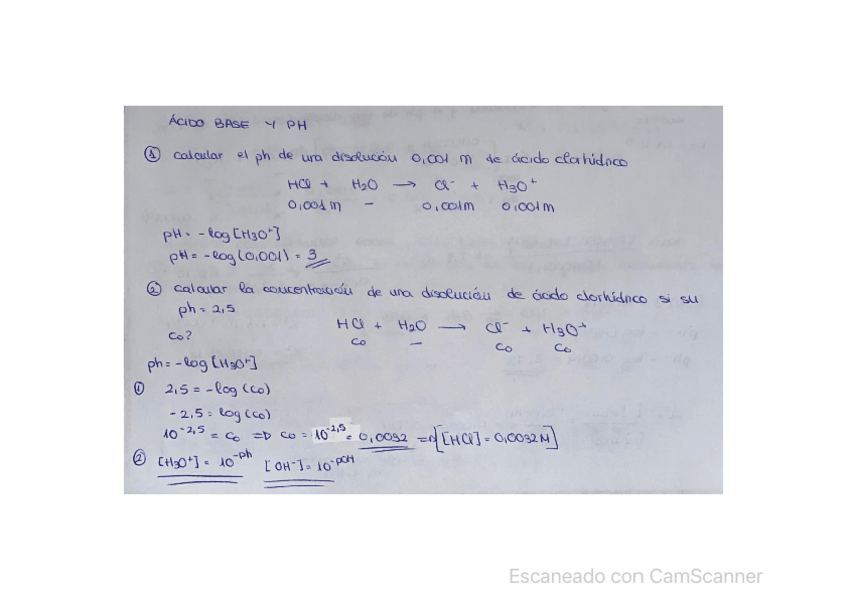 ÁCIDO BASE Y PH
① calcular el ph de una disolución 0,001 M de ácido clorhídrico
HCl + H2O → Cl⁻ + H3O⁺
0,001M – 0,001M 0,001M
pH = -log[H3O⁺]
pH = -log(0,001) = 3
② calcular la concentración de una disolución de ácido clorhídrico si su
ph = 2,5
HCl + H2O → Cl⁻ + H3O⁺
Co?
Co – Co Co
ph = -log[H3O⁺]
① 2,5 = -log(Co)
-2,5 = log(Co)
10^-2,5 = Co => Co = 10^-2,5 = 0,0032 => [[HCl] = 0,0032M]
② [H3O⁺] = 10^-ph [OH⁻] = 10^-pOH
Escaneado con CamScanner